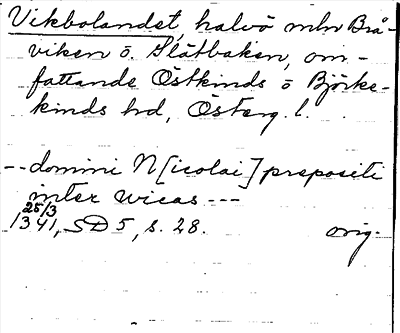 Vikbolandet, halvö mln Brå-
viken o. Slätbaken, om-
fattande Östkinds o Björke-
kinds hd, Österg. l.
-- domini N[icolai] prepositi
inter wicas ---
25/3
1341, SD 5, s. 28. orig.